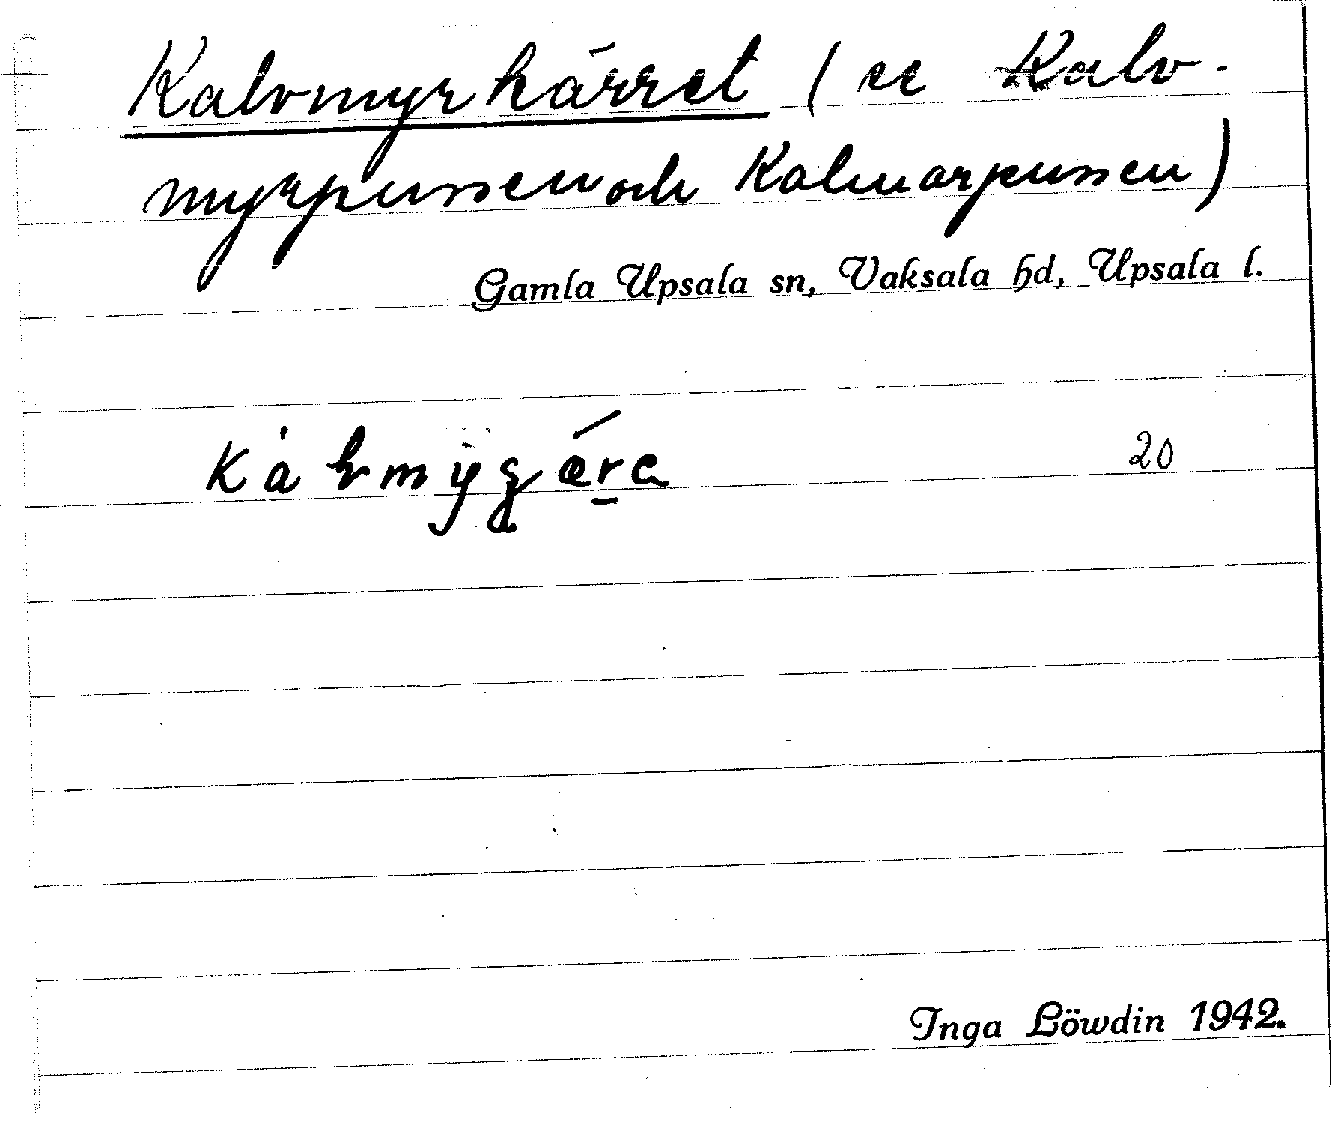 Kalvmyrkärret (se Kalv-
myrpussen och Kalmarpussen)
Gamla Upsala sn, Vaksala hd, Upsala l.
20
Inga Löwdin 1942.